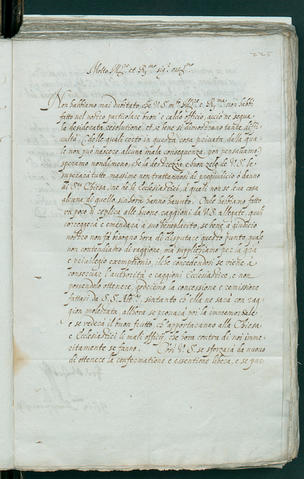 225
Molto Ill.re et R.mo sig.r oss.mo
Non habbiamo mai dubitato, che V.S. m.to Ill.re e R.ma non habbi
fatto nel nostro particolare buon' e caldo officio, acciò ne segua
la desiderata resolutione, et se bene si dimostrano tante diffi-
cultà, delle quali certo in questa cosa privata, dalla qua-
le non può nascere alcuna mala consequenza, non pensavamo,
speriamo nondimeno, che la destrezza e buon zelo de V.S. le
superarà tutte, massimo non trattandosi di pregiuditio o danno
di S.ta Chiesa, ne de li Ecclesiastici, a quali non se leva cosa
alcuna di quello, sin hora hanno havuto. Onde habbiamo fatto
un poco di replica alle buone raggioni da V.S. allegate, qual
correggerà e emendarà a suo beneplacito, se bene a giuditio
nostro non fa bisogno hora di disputare questo punto, quale
non contendiamo di raggione, ma supplichiamo per la gratia
e privileggio exemptionis, delle concedendosi se viene a
conservar l'autorità e raggioni Ecclesiastice, e non
possendo ottenere, godiamo la concessione e remissione
fattaci da S.S.tà, sintanto ch'ella ne sarà con rag-
gion molestata, allhora se provarà poi la
e se vederà il buon frutto, ch'apportaranno alla Chiesa
e Ecclesiastici li mali officii, che hora contra di noi imme-
ritamente se fanno. Prix V.S. se sforzarà de nuovo
di ottenere la confirmatione e essentione libera, e se que